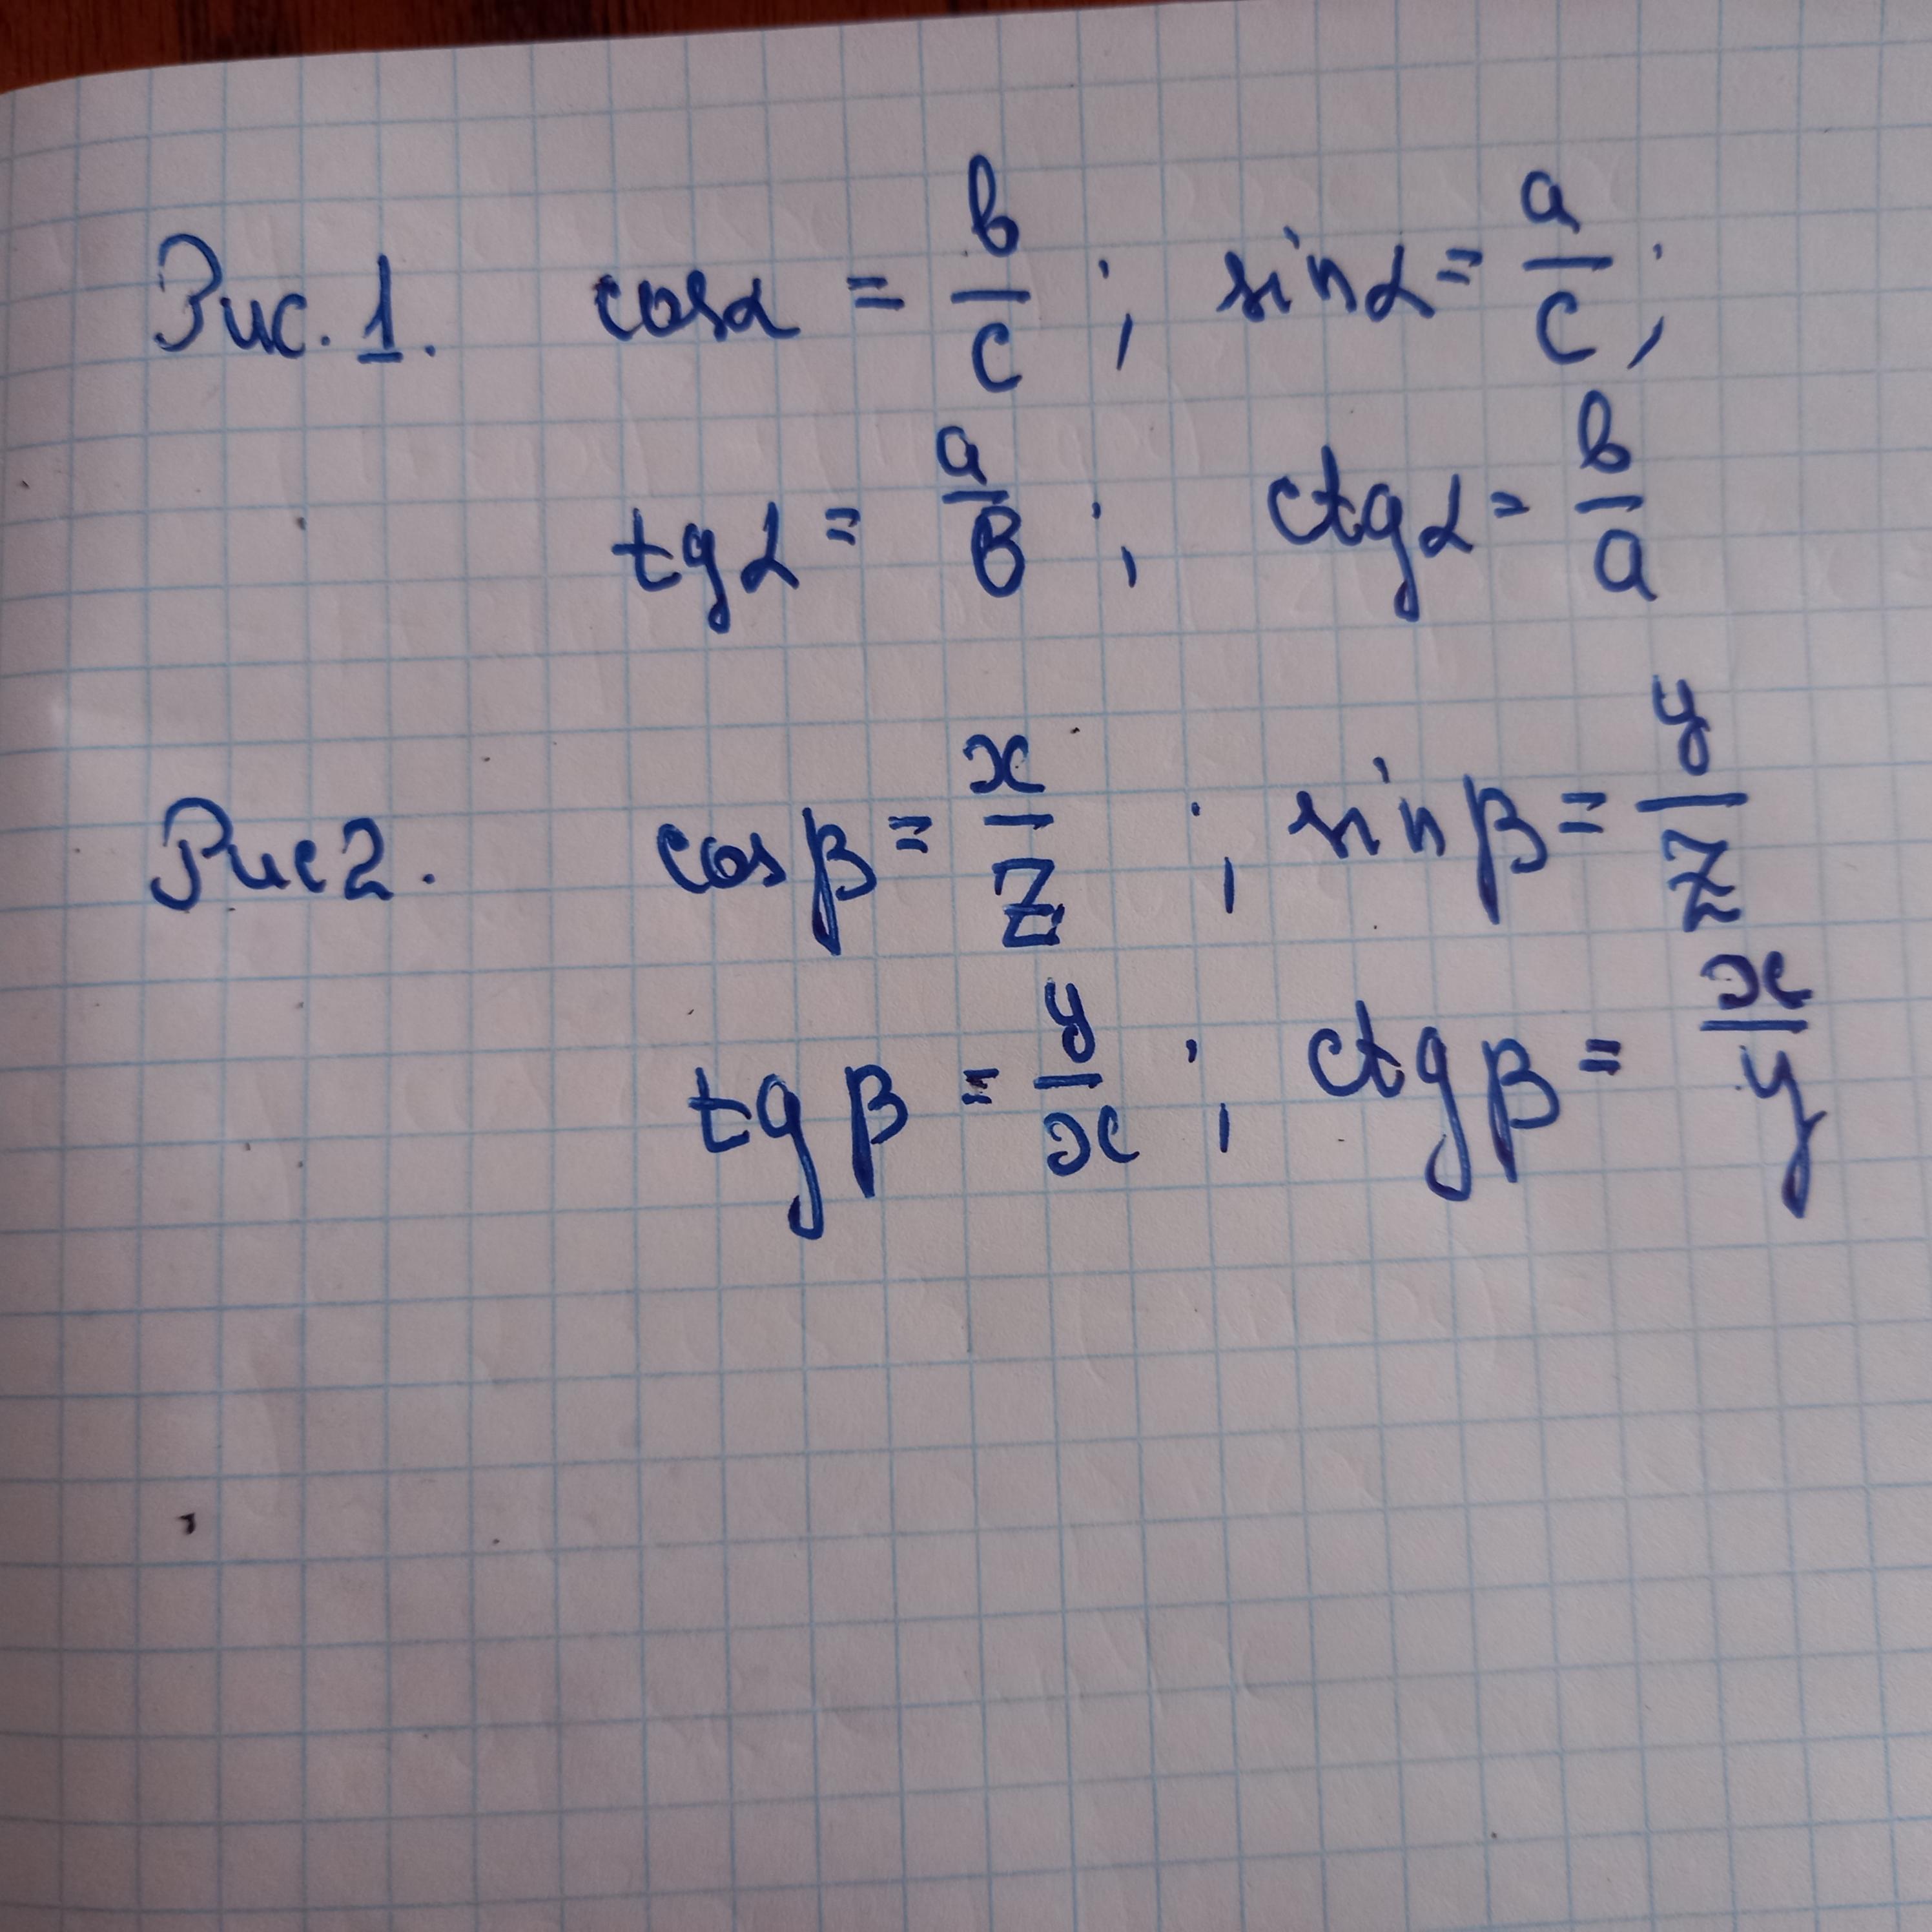 Рис. 1. cos α = b/c ; sin α = a/c ;
tg α = a/b ; ctg α = b/a
Рис 2. cos β = x/z ; sin β = y/z
tg β = y/x ; ctg β = x/y